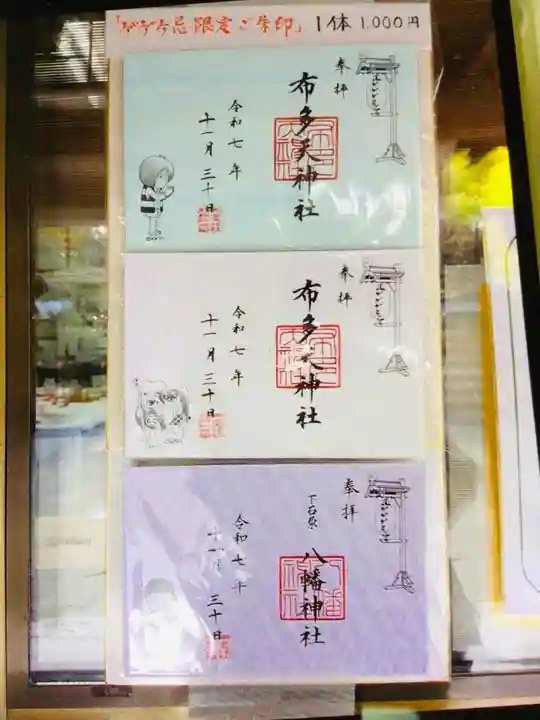 「ゲゲゲ忌限定ご朱印」 1体 1,000円
奉拝
布多天神社
令和七年
十一月三十日
奉拝
布多天神社
令和七年
十一月三十日
奉拝
下石原
八幡神社
令和七年
十一月三十日